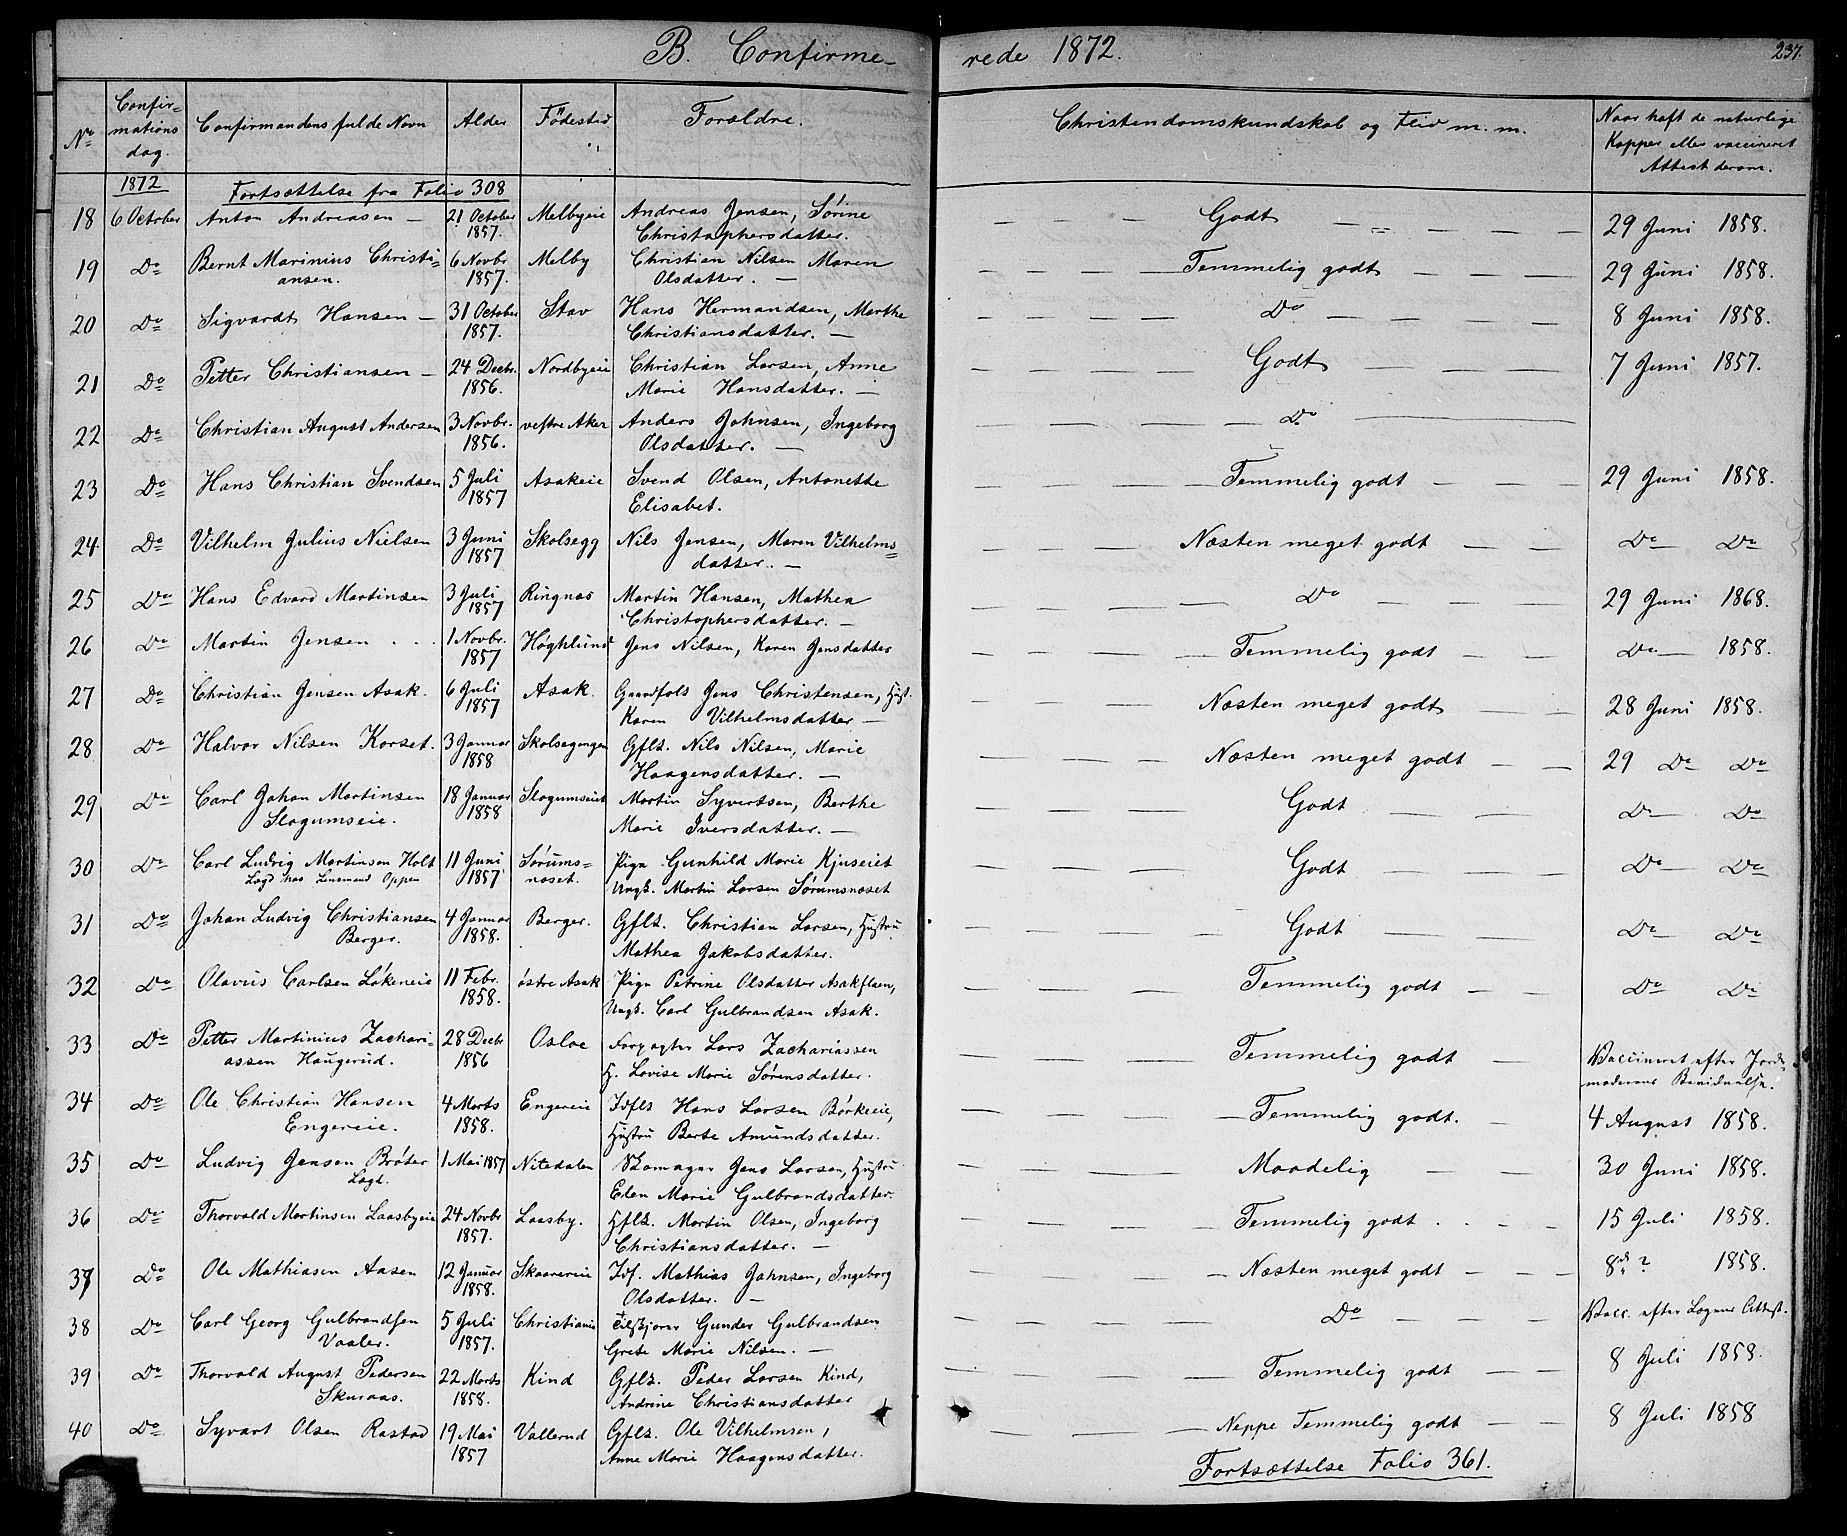 B. Confirme-
rede 1872.
237.
No
Confir-
mations
dag.
Confirmandens fulde Navn
Alder
Födested
Forældre.
Christendomskundskab og Flid m. m.
Naar haft de naturlige
Kopper eller vaccineret
Attest derom.
1872
Fortsættelse fra Folio 308
18 6 October Anton Andreasen — 21 October Melbyeie Andreas Jensen, Sørine — — — Godt — — — — 29 Juni 1858.
1857. Christophersdatter.
19 Do Bernt Marinius Christi= 6 Novbr. Melby Christian Nilsen Maren — — — — Temmelig godt — — — 29 Juni 1858.
ansen. 1857. Olsdatter. —
20 Do Sigvardt Hansen — 31 October Stav Hans Hermandsen, Marthe — — — — Do — — — — 8 Juni 1858.
1857. Christiansdatter. —
21 Do Petter Christiansen — 24 Decbr. Nordbyeie Christian Larsen, Anne — — — — Godt — — — 7 Juni 1857.
1856. Marie Hansdatter. —
22 Do Christian August Andersen 3 Novbr. vestre Aker Anders Johnsen, Ingeborg — — — — Do —
1856. Olsdatter. —
23 Do Hans Christian Svendsen 5 Juli Asakeie Svend Olsen, Antonette — — — — Temmelig godt — — — 29 Juni 1858.
1857 Elisabet.
24 Do Vilhelm Julius Nielsen 3 Juni Skolsegg Nils Jensen, Maren Vilhelms= — — — — Næsten meget godt — — Do Do
1857 datter. —
25 Do Hans Edvard Martinsen 3 Juli Ringnæs Martin Hansen, Mathea — — — — Do — — — 29 Juni 1868.
1857 Christophersdatter. —
26 Do Martin Jensen 1 Novbr. Høghlund Jens Nilsen, Karen Jensdatter — — — — Temmelig godt — — — Do 1858.
1857
27 Do Christian Jensen Asak. 6 Juli Asak. Gaardfols Jens Christensen, Hust. — — — — Næsten meget godt — — 28 Juni 1858.
1857 Karen Vilhelmsdatter —
28 Do Halvor Nilsen Korset. 3 Januar Skolsegengen Gflk. Nils Nilsen, Marie — — — — Næsten meget godt — — 29 Do Do
1858 Haagensdatter. —
29 Do Carl Johan Martinsen 18 Januar Slogumseiet Martin Syvertsen, Berthe — — — Godt — — — Do Do
Slogumseie. 1858 Marie Iversdatter. —
30 Do Carl Ludvig Martinsen Holt 11 Juni Sørums= Pige Gunhild Marie Kjuseiet — — — — Godt — — — Do Do
Lagd hos Linemand Oppen 1857 næset. Ungk. Martin Larsen Sørumsnæset
31 Do Johan Ludvig Christiansen 4 Januar Berger. Gflk. Christian Larsen, Hustru — — — Godt — — — Do Do
Berger. 1858. Mathea Jakobsdatter.
32 Do Olavus Carlsen Løkeneie 11 Febr. østre Asak Pige Petrine Olsdatter Asakflaen, — — — — Temmelig godt — — Do Do
1858. Ungk. Carl Gulbrandsen Asak.
33 Do Petter Martinius Zachari= 28 Decbr Osloe Forpagter Lars Zachariassen — — — — Temmelig godt — Vaccineret efter Jorde=
assen Haugerud. 1856 H. Lovise Marie Sørensdatter. moderens Bevidnelse.
34 Do Ole Christian Hansen 4 Marts Engereie Idflk Hans Larsen Børkeeie, — — — Temmelig godt. — 4 August 1858.
Engereie. 1858. Hustru Berte Amundsdatter.
35 Do Ludvig Jensen Brøter 1 Mai 1857 Nitedalen Skomager Jens Larsen, Hustru — — — — Maadelig — — 30 Juni 1858.
Lagd. Elen Marie Gulbrandsdatter.
36 Do Thorvald Martinsen Laasbyeie 24 Novbr Laasby. Gflk. Martin Olsen, Ingeborg — — — — Temmelig godt. — — — 15 Juli 1858.
1857. Christiansdatter. —
37 Do Ole Mathiasen Aasen 12 Januar Skaarereie Idf. Mathias Johnsen, Ingeborg — — — — Næsten meget godt — — — 8de ? 1858.
1858. Olsdatter. —
38 Do Carl Georg Gulbrandsen 5 Juli Christiania Gunder Gulbrandsen — — — — Do — — — Vacc. efter Lægens Attest.
Vaaler. 1857. Grete Marie Nilsen. —
39 Do Thorvald August Pedersen 22 Marts Kind Gflk. Peder Larsen Kind, — — — — Temmelig godt — — 8 Juli 1858.
Skuraas. 1858. Andrine Christiansdatter
40 Do Syvart Olsen Rastad 19 Mai Vallerud Gflk. Ole Vilhelmsen, — — — — Neppe Temmelig godt — — 8 Juli 1858
1857 Anne Marie Haagensdatter.
Fortsættelse Folio 361.